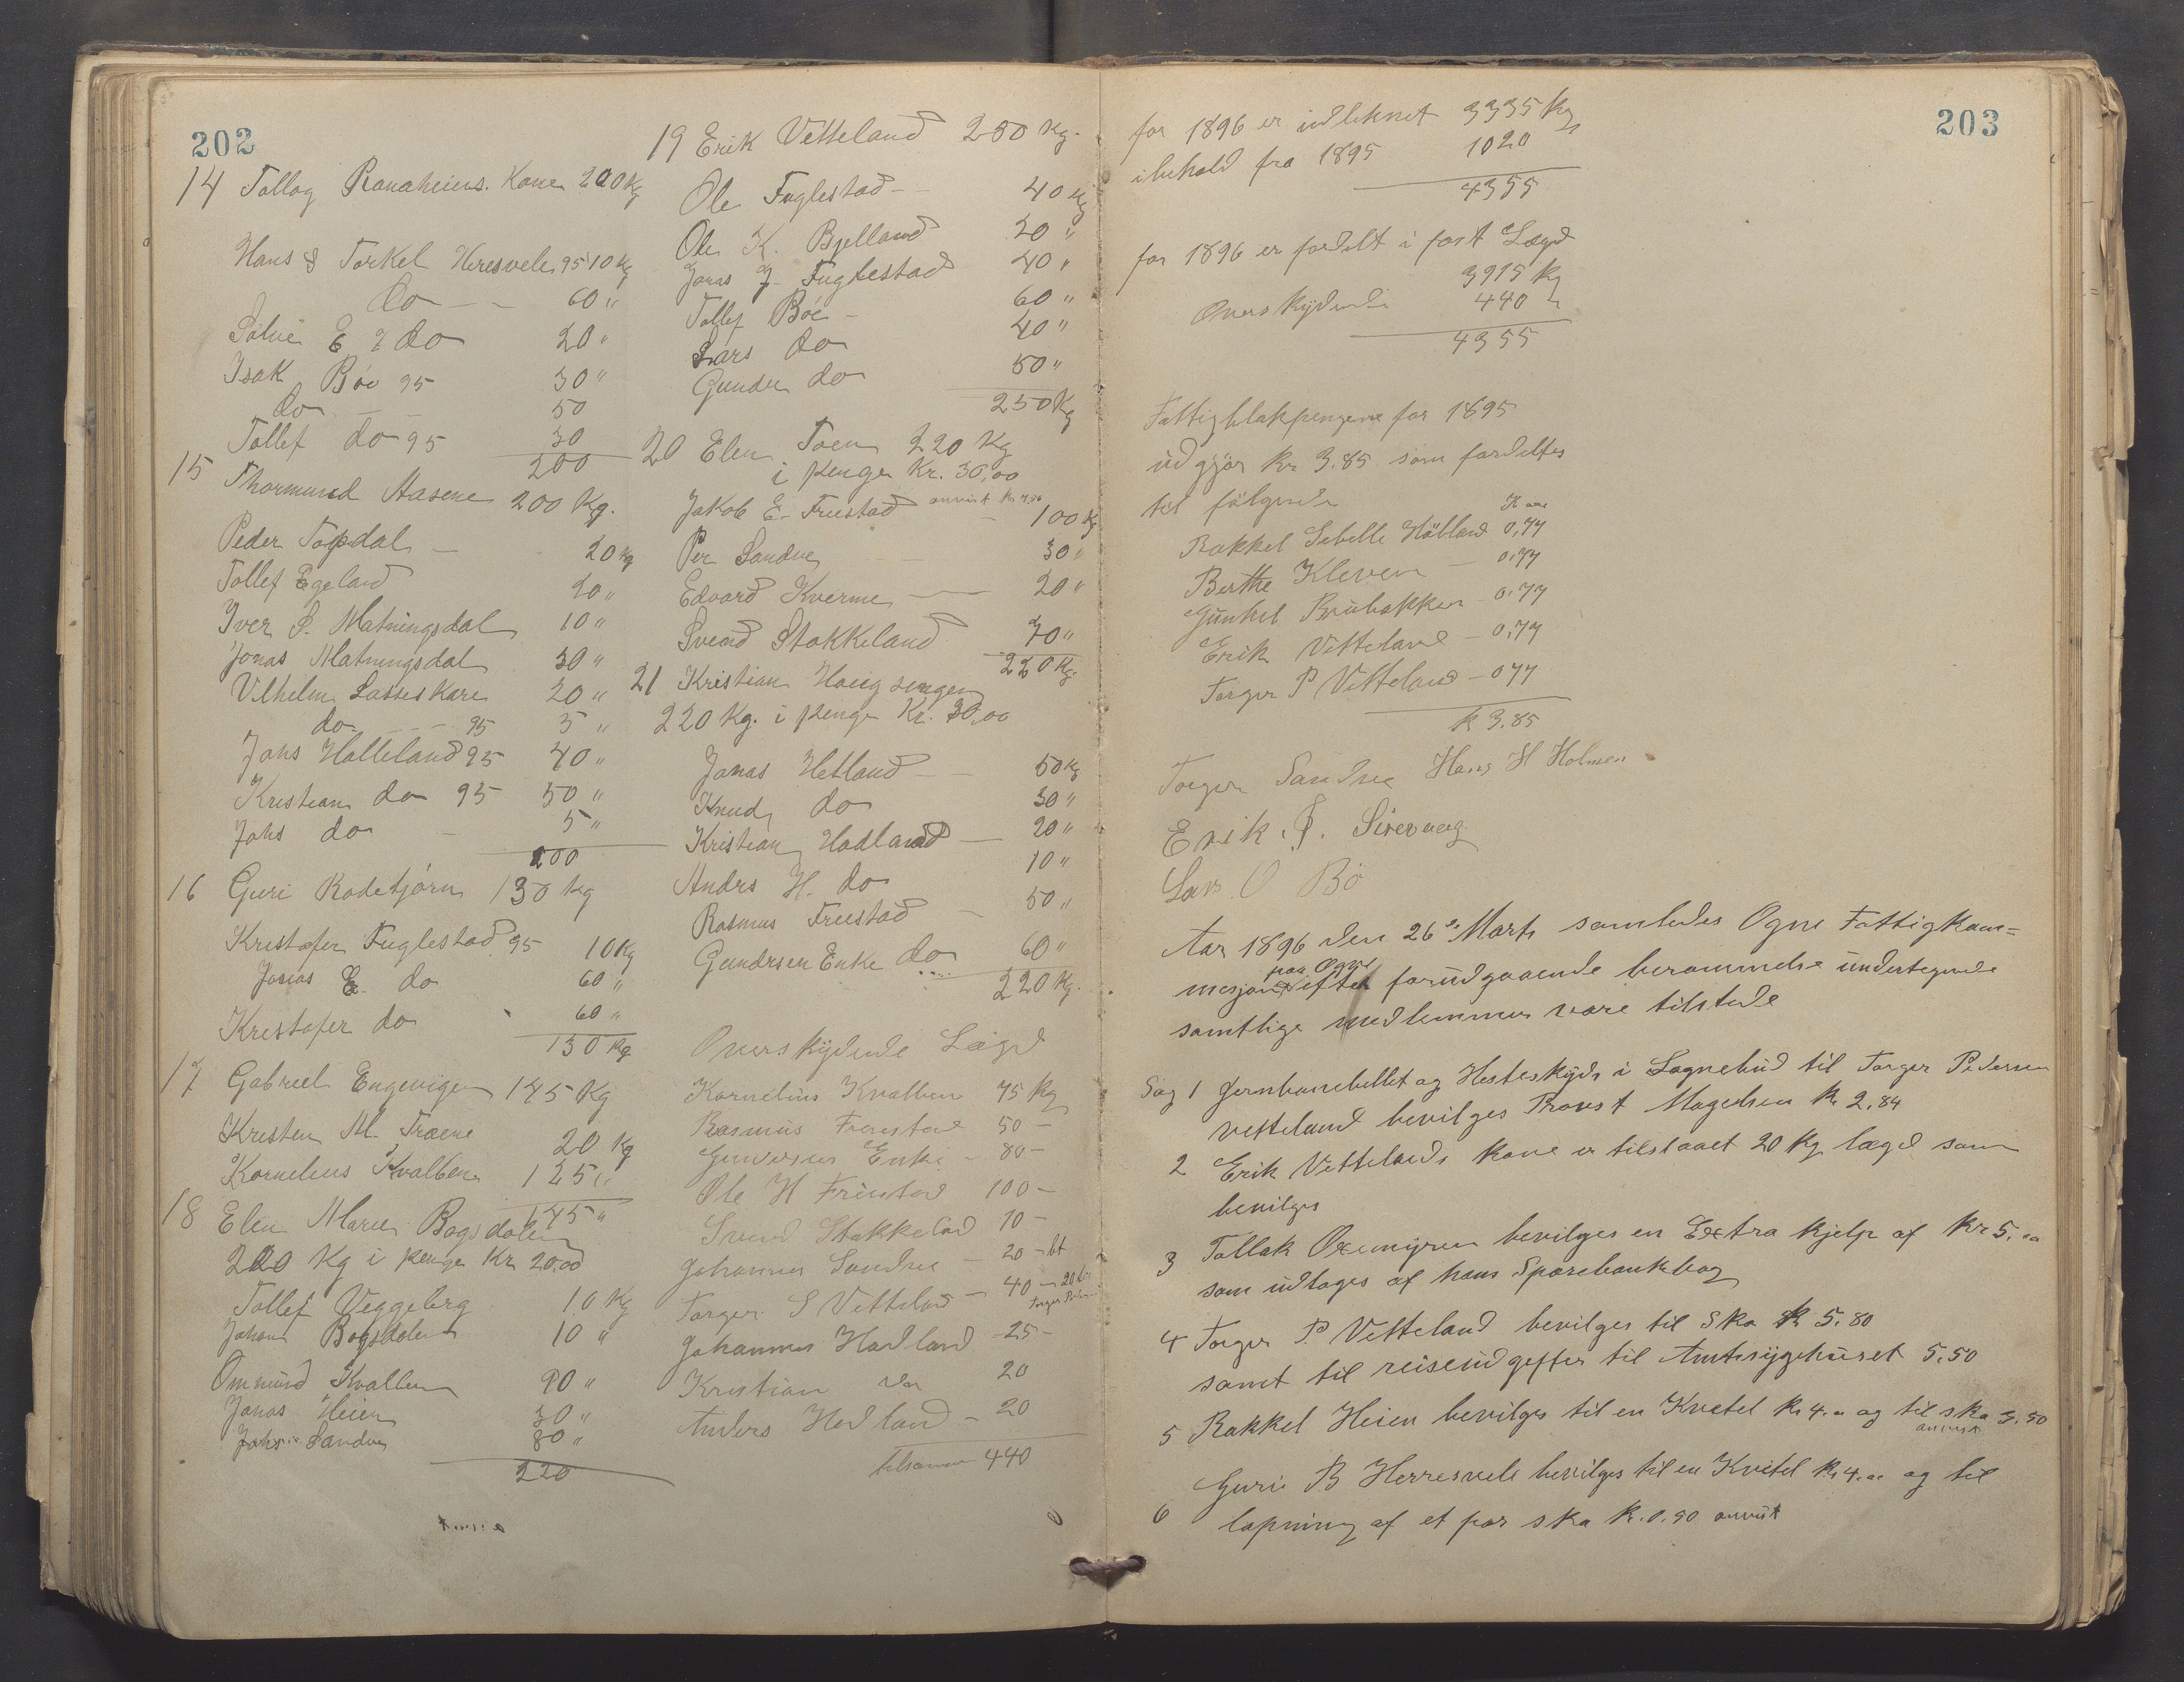 202
14 Tollag Ranaheiens. Kone 200 Kg
Hans & Torkel Heresvele 95 10 Kg
do - - 60 "
Sølve E & do 20 "
Isak Böe 95 30 "
do - - 50
Tollef do 95 30
200
15 Thormund Aasene 200 Kg.
Peder Topdal - 20 Kg
Tollef Egeland 20 "
Iver S. Matningsdal 10 "
Jonas Matningsdal 30 "
Vilhelm Lasseskare 20 "
do - - 95 5 "
Johs Halleland 95 40 "
Kristian do 95 50 "
Johs do - 5 "
200
16 Guri Rodetjørn 130 Kg
Kristofer Fuglestad 95 10 Kg
Jonas E. do 60 "
Kristofer do 60 "
130 Kg
17 Gabriel Engevigen 145 Kg
Kristen M. Traene 20 Kg
Kornelius Kvalben 125 "
145 "
18 Elen Marie Bogsdalen
220 Kg i penge Kr 20.00
Tollef Veggeberg 10 Kg
Johan Bogsdalen 10 "
Ommund Kvalben 90 "
Jonas Heien 30 "
Johs Sandve 80 "
220
19 Erik Vetteland 250 Kg.
Ole Fuglestad - 40 Kg
Ole K. Bjelland 20 "
Jonas J. Fuglestad 40 "
Tollef Böe - 60 "
Lars do 40 "
Gunder do 50 "
250 Kg
20 Elen Toen 220 Kg
i penge Kr. 30,00
anvist Kr
Jakob E. Freestad - 100 Kg
Per Sandve 30 "
Edvard Kverme - 20 "
Svend Stokkeland 70 "
220 Kg.
21 Kristian Haugsengen
220 Kg. i penge Kr. 30,00
Jonas Hetland - 50 Kg
Knud do 30 "
Kristian Hadland - 20 "
Andrs H. do 10 "
Rasmus Freestad - 50 "
Gundersen Enke do 60 "
220 Kg.
Overskydende Lægd
Kornelius Kvalben 75 Kg
Rasmus Freestad 50 -
Gundersens Enke - 80 -
Ole H Friestad 100 -
Svend Stokkelad 10 -
Johannes Sandve - 20 - bt
Torger S Vetteland - 40 - 20 bt
Torger
Johannes Hadland - 25 -
Kristian do 20
Anders Hadland - 20
tilsamen 440
203
for 1896 er udliknet 3335 Kg
ibehold fra 1895 1020
4355
for 1896 er fordelt i fast Lægd
3915 Kg
Overskydende 440 "
4355
Fattigblokpengene for 1895
udgjør Kr 3.85 som fordeltes
til følgende
Rakkel Sibelle Hölland 0,77
Berthe Kleven - 0,77
Gunhel Brubakken - 0,77
Erik Vetteland - 0,77
Torger P Vetteland - 0 77
K 3.85
Torger Sandve Hans H Holmen
Erik . Sirevaag
Lars O Bö
Aar 1896 den 26de Marts samledes Ogne Fattigkom=
paa Ogne
mesjon efter forudgaaende berammelse undertegnede
samtlige medlemmer vare tilstede
Sag 1 Jernbanebillet og Hesteskyds i Sognebud til Torger Pedersen
Vetteland bevilges Provst Magelsen Kr 2,84
2 Erik Vettelands kone er tilstaaet 20 Kg lægd som
bevilges
3 Tollak Oxemyren bevilges en Extra hjelp af Kr 5.00
som udtages af hans Sparebankbog
4 Torger P. Vetteland bevilges til Sko Kr 5.80
samt til reiseudgifter til Amtssygehuset 5,50
5 Rakkel Heien bevilges til en Kvetel Kr 4.00 og til sko 3,50
anvist
6 Guri B Herresvele bevilges til en Kvitel Kr 4.00 og til
lapning af et par sko Kr. 0.90 anvist